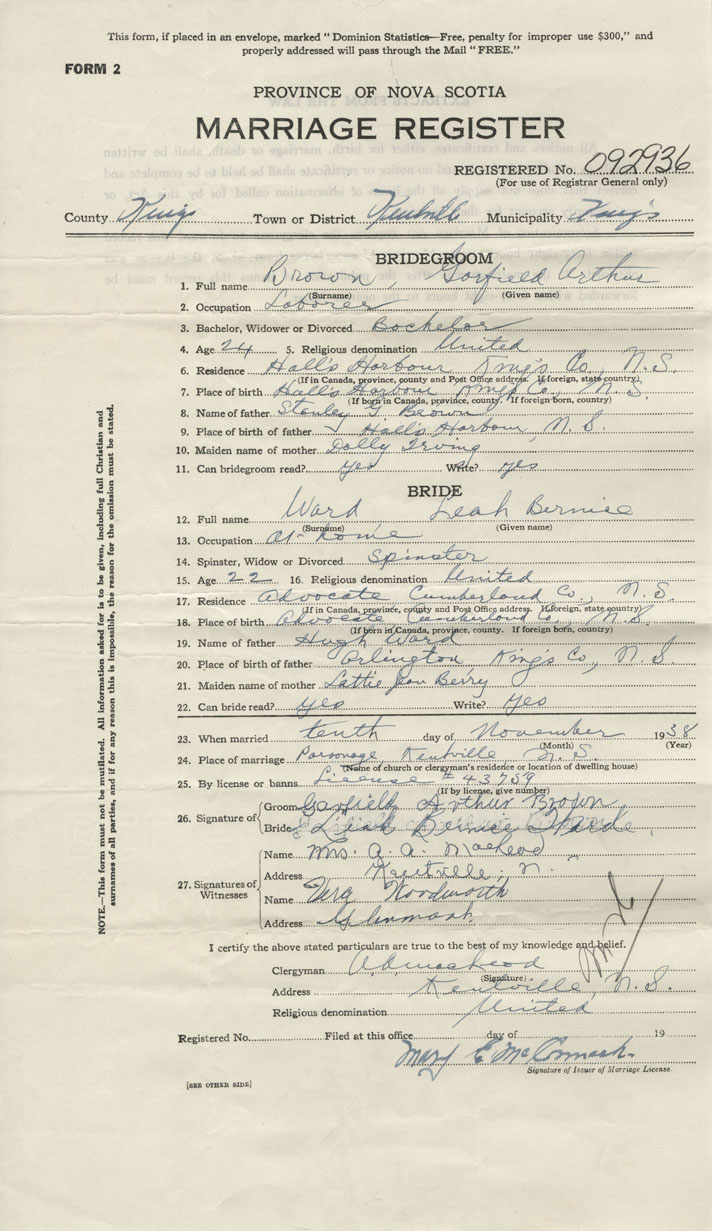 This form, if placed in an envelope, marked "Dominion Statistics—Free, penalty for improper use $300," and
properly addressed will pass through the Mail "FREE."
FORM 2
PROVINCE OF NOVA SCOTIA
MARRIAGE REGISTER
REGISTERED No. 092936
(For use of Registrar General only)
County Kings Town or District Kentville Municipality King's
BRIDEGROOM
1. Full name Brown, Garfield Arthur
(Surname) (Given name)
2. Occupation Laborer
3. Bachelor, Widower or Divorced Bachelor
4. Age 24 5. Religious denomination United
6. Residence Hall's Harbour King's Co., N.S.
(If in Canada, province, county and Post Office address. If foreign, state country)
7. Place of birth Hall's Harbour King's Co., N.S.
(If born in Canada, province, county. If foreign born, country)
8. Name of father Stanley G. Brown
9. Place of birth of father Hall's Harbour, N.S.
10. Maiden name of mother Dolly Irving
11. Can bridegroom read? yes Write? yes
BRIDE
12. Full name Ward Leah Bernice
(Surname) (Given name)
13. Occupation at Home
14. Spinster, Widow or Divorced Spinster
15. Age 22 16. Religious denomination United
17. Residence Advocate Cumberland Co., N.S.
(If in Canada, province, county and Post Office address. If foreign, state country)
18. Place of birth Advocate Cumberland Co., N.S.
(If born in Canada, province, county. If foreign born, country)
19. Name of father Hugh Ward
20. Place of birth of father Arlington, King's Co., N.S.
21. Maiden name of mother Lattie Berry
22. Can bride read? yes Write? yes
23. When married tenth day of November 1938
(Month) (Year)
24. Place of marriage Parsonage, Kentville, N.S.
(Name of church or clergyman's residence or location of dwelling house)
25. By license or banns License #43759
(If by license, give number)
26. Signature of Groom Garfield Arthur Brown
Bride Leah Bernice Ward
27. Signatures of Witnesses Name Mrs. A. A. MacLeod
Address Kentville, N.
Name Vera Woodworth
Address Glenmont
I certify the above stated particulars are true to the best of my knowledge and belief.
Clergyman A A MacLeod
(Signature)
Address Kentville, N.S.
Religious denomination United
Registered No. Filed at this office day of 19
Mary E McCormack.
Signature of Issuer of Marriage License
[SEE OTHER SIDE]
NOTE.—This form must not be mutilated. All information asked for is to be given, including full Christian and
surnames of all parties, and if for any reason this is impossible, the reason for the omission must be stated.